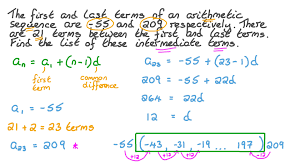 The first and last terms of an arithmetic
sequence are -55 and 209 respectively. There
are 21 terms between the first and last terms.
Find the list of these intermediate terms.
aₙ = a₁ + (n-1)d
first
term
common
difference
a₁ = -55
21 + 2 = 23 terms
a₂₃ = 209 *
a₂₃ = -55 + (23-1)d
209 = -55 + 22d
264 = 22d
12 = d
-55, (-43, -31, -19 ... 197) 209
+12 +12 +12